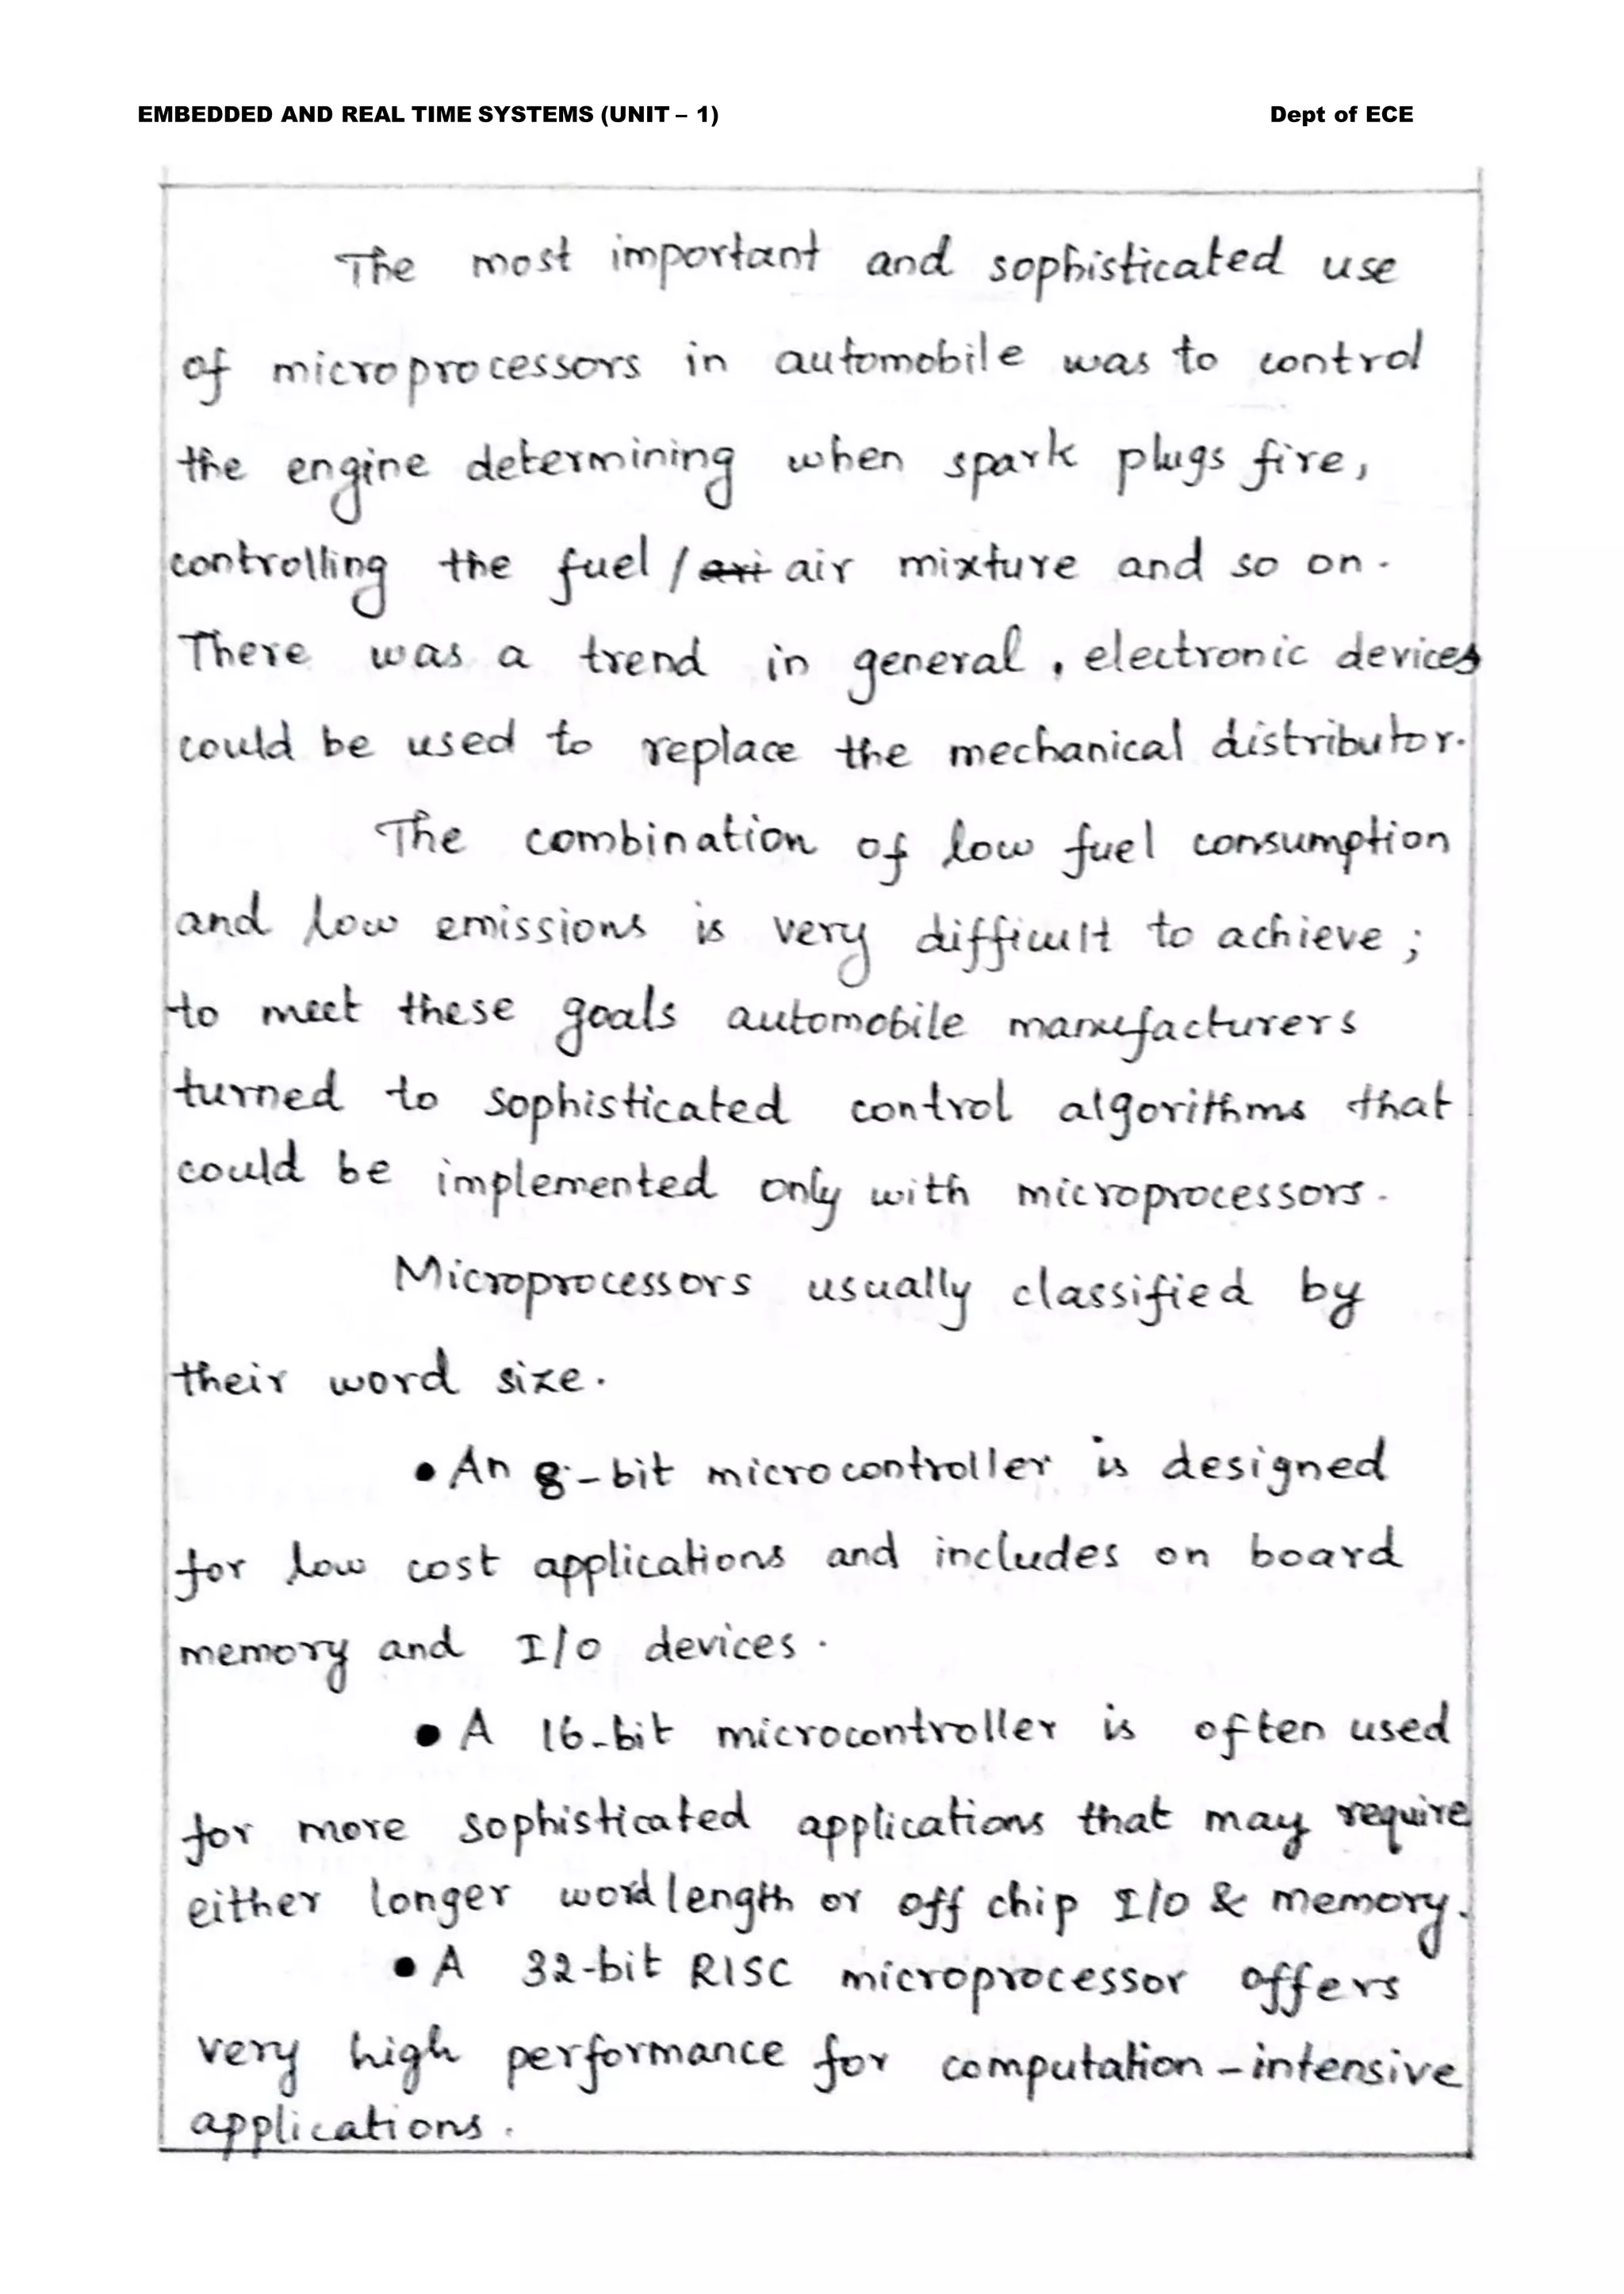 EMBEDDED AND REAL TIME SYSTEMS (UNIT – 1) Dept of ECE
The most important and sophisticated use
of microprocessors in automobile was to control
the engine determining when spark plugs fire,
controlling the fuel / air mixture and so on.
There was a trend in general, electronic devices
could be used to replace the mechanical distributor.
The combination of low fuel consumption
and low emissions is very difficult to achieve ;
to meet these goals automobile manufacturers
turned to sophisticated control algorithms that
could be implemented only with microprocessors.
Microprocessors usually classified by
their word size.
• An 8-bit microcontroller is designed
for low cost applications and includes on board
memory and I/O devices.
• A 16-bit microcontroller is often used
for more sophisticated applications that may require
either longer word length or off chip I/O & memory.
• A 32-bit RISC microprocessor offers
very high performance for computation-intensive
applications.